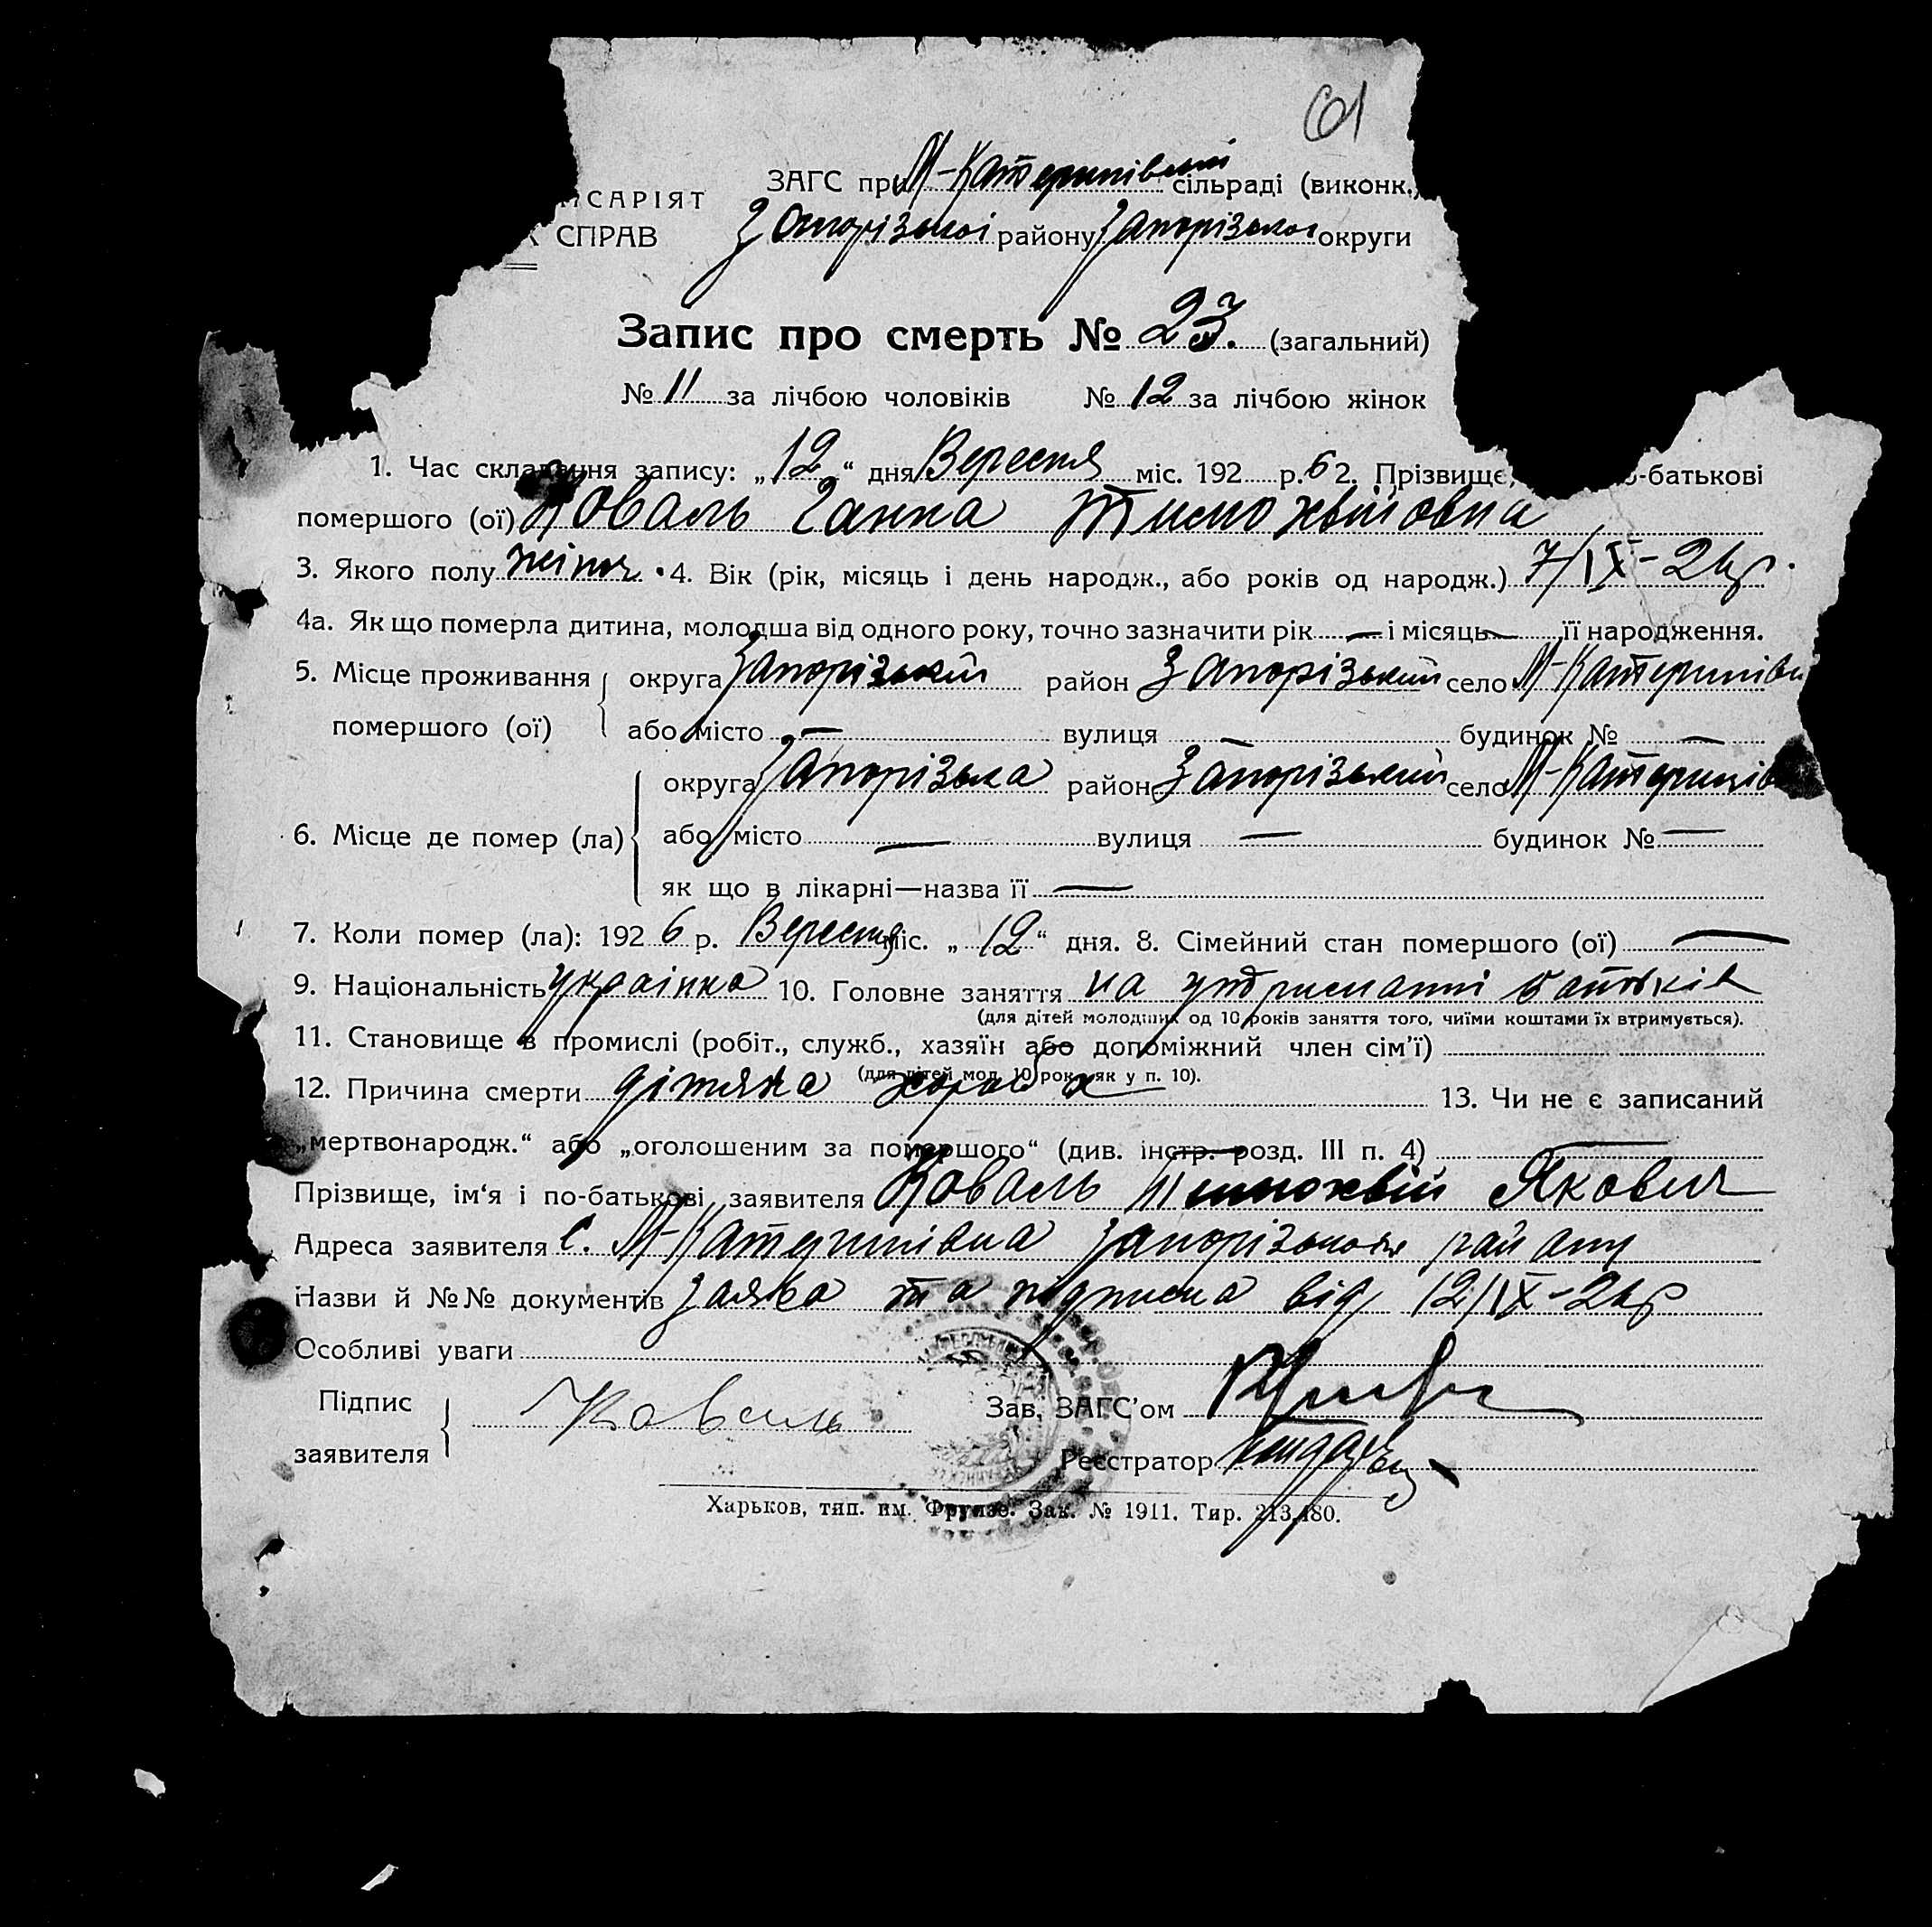 61
ЗАГС при М-Катеринівській сільраді (виконк.)
ИСАРІЯТ
Х СПРАВ
Запорізької району Запорізької округи
Запис про смерть № 23. (загальний)
№ 11 за лічбою чоловіків № 12 за лічбою жінок
1. Час складання запису: „12“ дня Вересня міс. 192 р. 6 2. Прізвище, о-батькові
помершого (ої) Коваль Ганна Тимохвіївна
3. Якого полу жіноч. 4. Вік (рік, місяць і день народж., або років од народж.) 7/IX-24р.
4а. Як що померла дитина, молодша від одного року, точно зазначити рік — і місяць — її народження.
5. Місце проживання помершого (ої) округа Запорізький район Запорізький село М-Катеринівк
або місто — вулиця — будинок № —
6. Місце де помер (ла) округа Запорізька район Запорізький село М-Катеринів
або місто — вулиця — будинок № —
як що в лікарні—назва її —
7. Коли помер (ла): 1926 р. Вересня міс. „12“ дня. 8. Сімейний стан помершого (ої) —
9. Національність українка 10. Головне заняття на утриманні батьків
(для дітей молодших од 10 років заняття того, чиїми коштами їх втримується).
11. Становище в промислі (робіт., служб., хазяїн або допоміжний член сім’ї)
(для дітей мол. 10 рок., як у п. 10).
12. Причина смерти дітяча хороба 13. Чи не є записаний
„мертвонародж.“ або „оголошеним за помершого“ (див. інстр. розд. III п. 4) —
Прізвище, ім‘я і по-батькові заявителя Коваль Тимохвій Якович
Адреса заявителя с. М-Катеринівка Запорізького району
Назви й №№ документів Заява та підписка від 12/IX-26р
Особливі уваги
Підпис заявителя Коваль Зав. ЗАГС’ом
Реєстратор
Харьков, тип. им. Фрунзе. Зак. № 1911. Тир. 213.480.